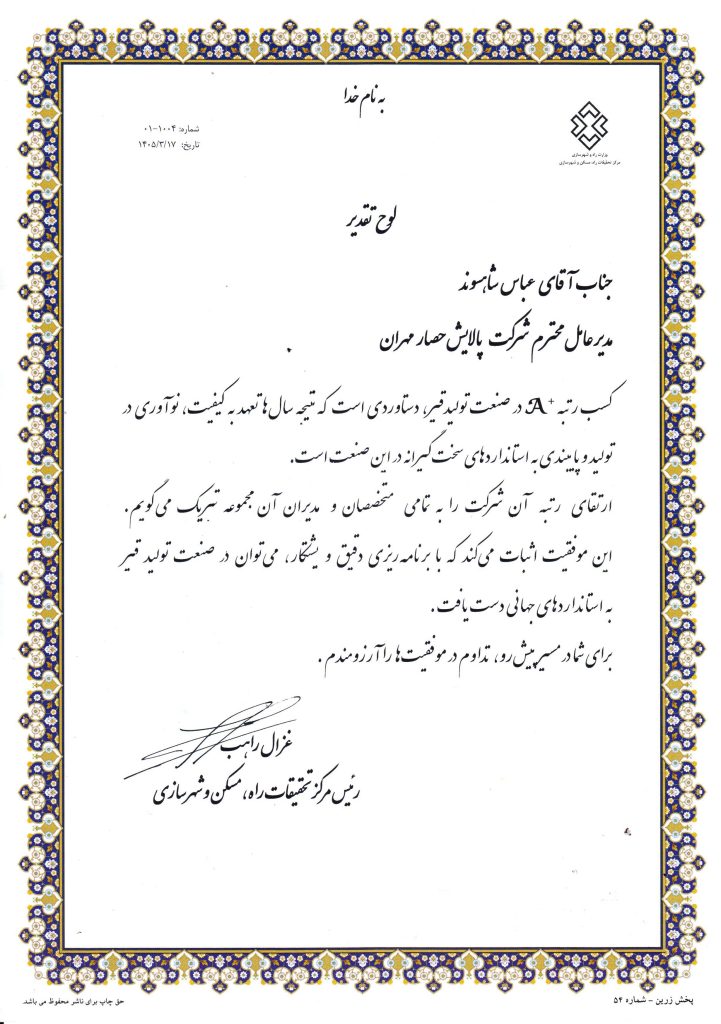 به نام خدا
شماره: ۱۰۰۴-۰۱
تاریخ: ۱۴۰۵/۳/۱۷
وزارت راه و شهرسازی
مرکز تحقیقات راه، مسکن و شهرسازی
لوح تقدیر
جناب آقای عباس شاهسوند
مدیرعامل محترم شرکت پالایش حصار مهران
کسب رتبه A+ در صنعت تولید قیر، دستاوردی است که نتیجه سال‌ها تعهد به کیفیت، نوآوری در
تولید و پایبندی به استانداردهای سخت‌گیرانه در این صنعت است.
ارتقای رتبه آن شرکت را به تمامی متخصصان و مدیران آن مجموعه تبریک می‌گویم.
این موفقیت اثبات می‌کند که با برنامه‌ریزی دقیق و پشتکار، می‌توان در صنعت تولید قیر
به استانداردهای جهانی دست یافت.
برای شما در مسیر پیش‌رو، تداوم در موفقیت‌ها را آرزومندم.
غزال راهب
رئیس مرکز تحقیقات راه، مسکن و شهرسازی
پخش زرین - شماره ۵۴
حق چاپ برای ناشر محفوظ می باشد.